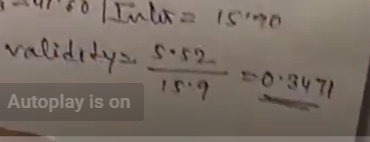 15.90
validity = 5.52
15.9
= 0.3471
Autoplay is on